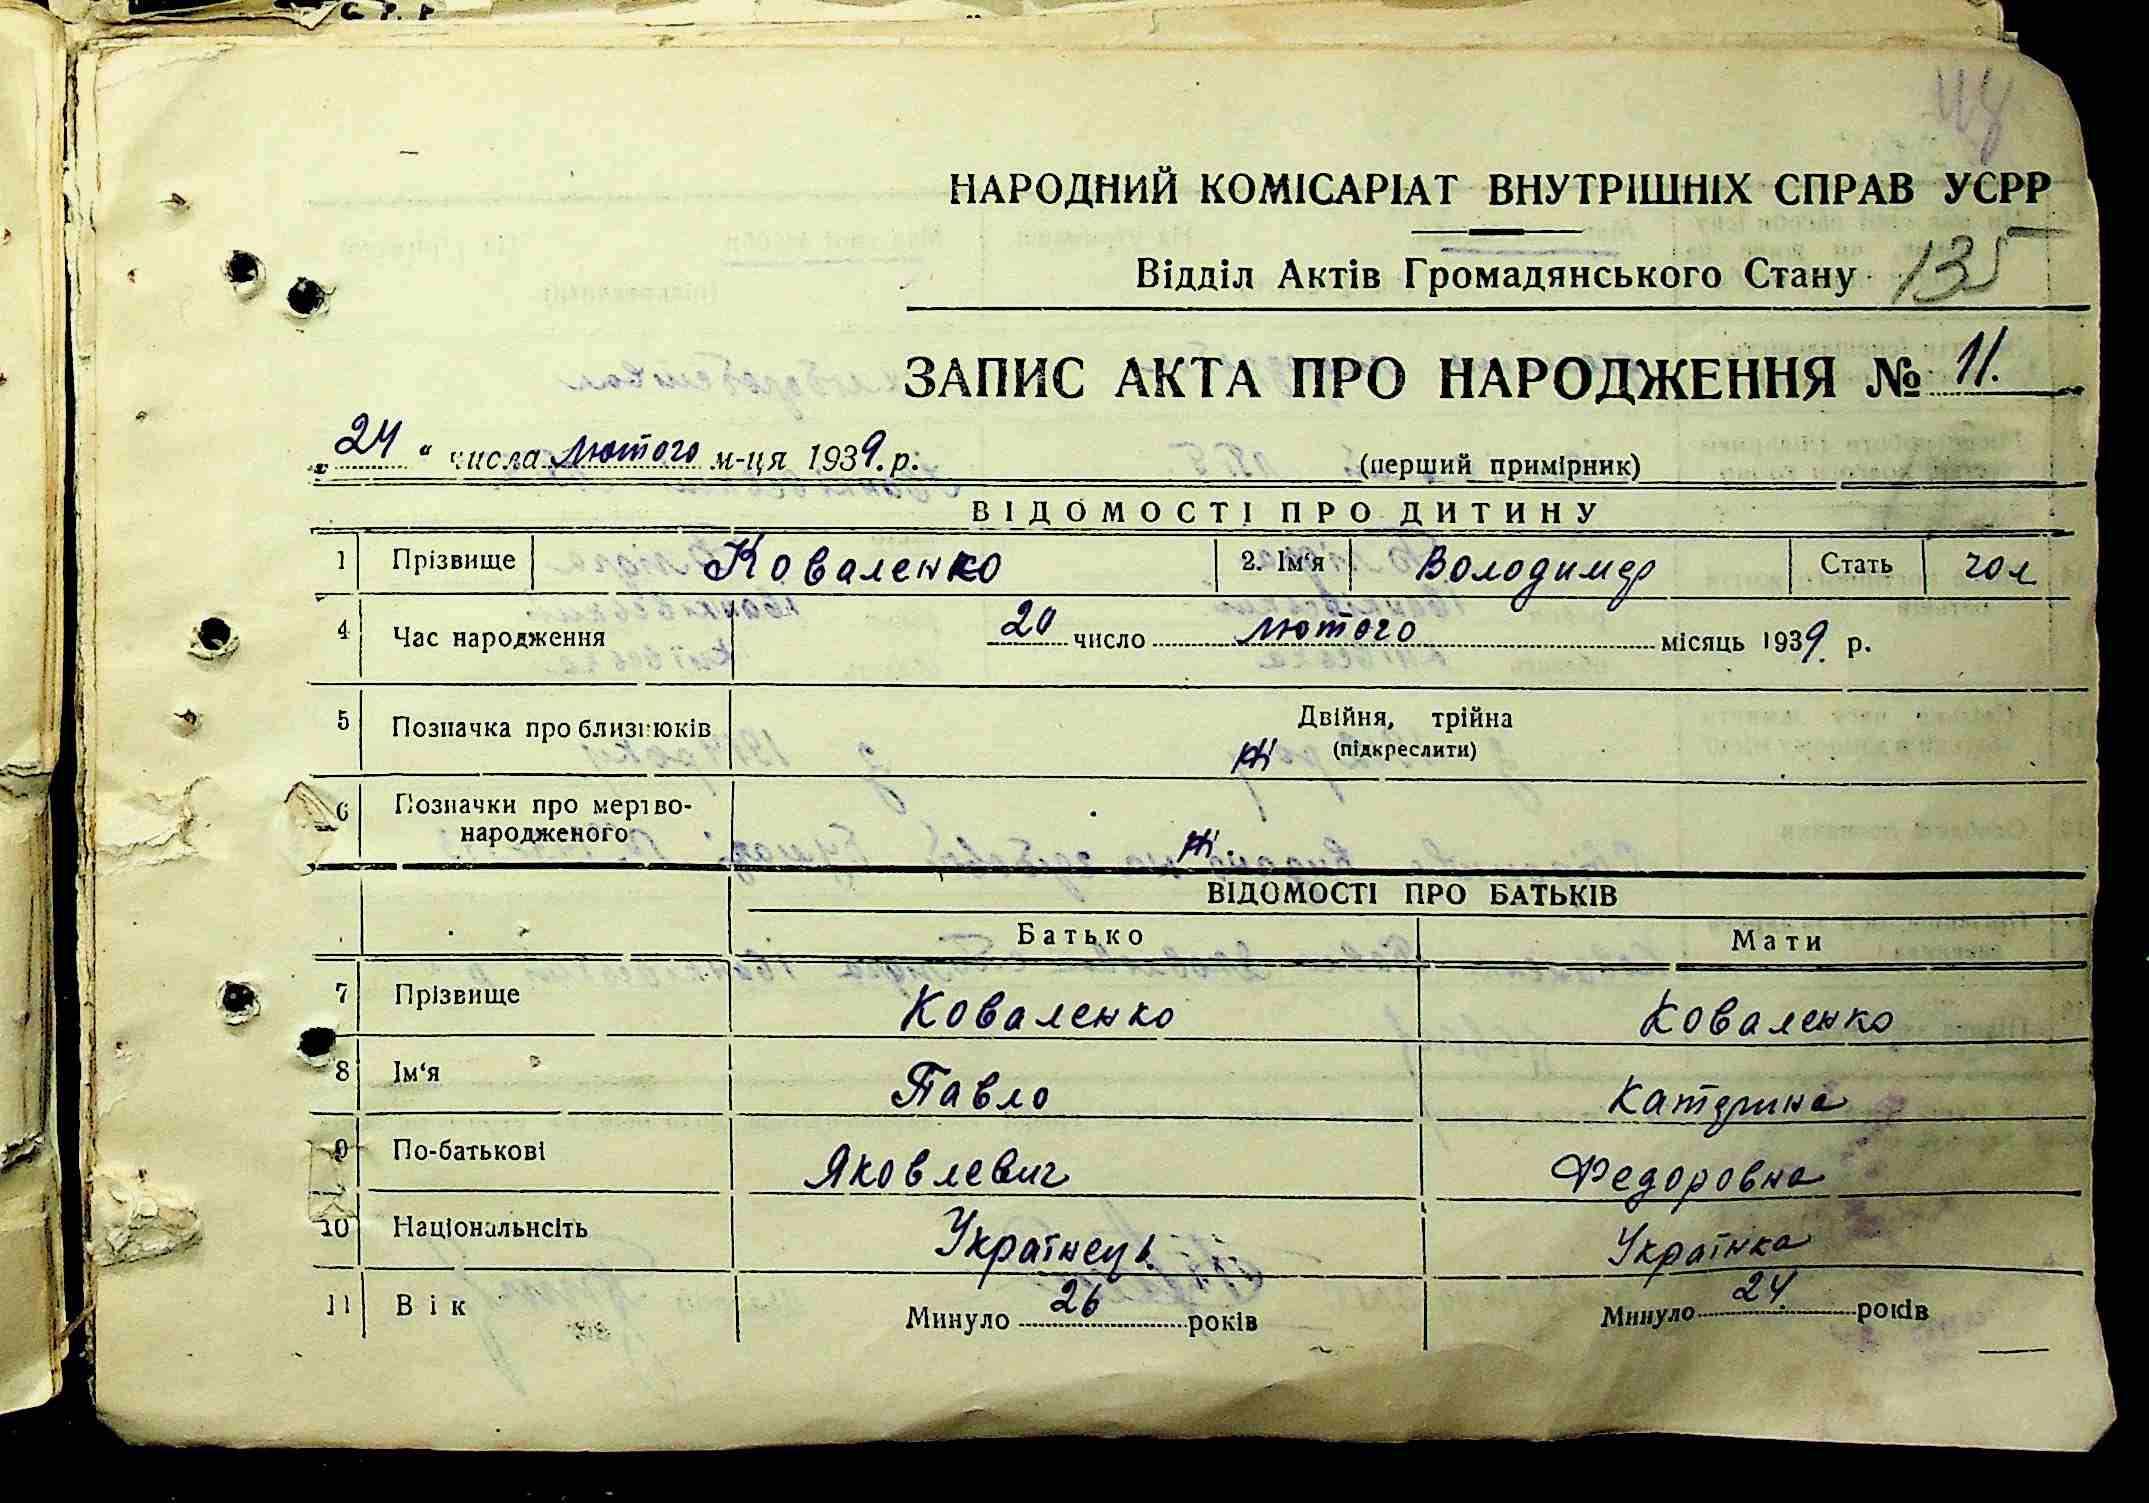 НАРОДНИЙ КОМІСАРІАТ ВНУТРІШНІХ СПРАВ УСРР
Відділ Актів Громадянського Стану 135
ЗАПИС АКТА ПРО НАРОДЖЕННЯ № 11.
„24“ числа лютого м-ця 1939. р. (перший примірник)
ВІДОМОСТІ ПРО ДИТИНУ
1 Прізвище Коваленко 2. Ім‘я Володимер Стать чол
4 Час народження 20 число лютого місяць 1939. р.
5 Позначка про близнюків Двійня, трійна
(підкреслити)
ні
6 Позначки про мертво-
народженого
ні.
ВІДОМОСТІ ПРО БАТЬКІВ
Батько Мати
7 Прізвище Коваленко Коваленко
8 Ім‘я Павло Катерина
9 По-батькові Яковлевич Федоровна
10 Національнсіть Українець Українка
11 Вік Минуло 26 років Минуло 24 років